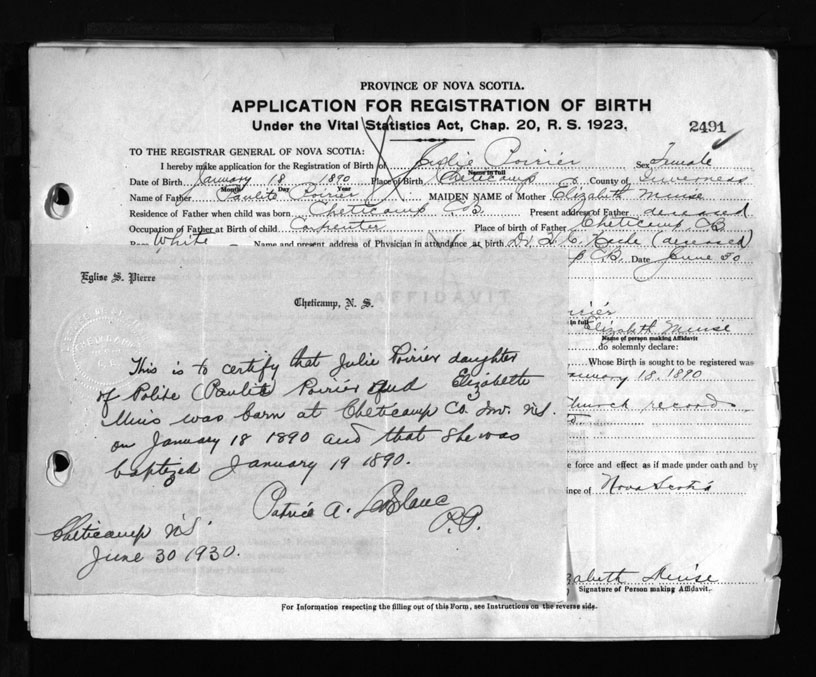 PROVINCE OF NOVA SCOTIA.
APPLICATION FOR REGISTRATION OF BIRTH
Under the Vital Statistics Act, Chap. 20, R. S. 1923.
2491
TO THE REGISTRAR GENERAL OF NOVA SCOTIA:
I hereby make application for the Registration of Birth of Julie Poirier Sex Female
Name in full
Date of Birth January 18 1890 Place of Birth Cheticamp County of Inverness
Month Day Year
Name of Father Paulite Poirier MAIDEN NAME of Mother Elizabeth Muise
Residence of Father when child was born Cheticamp C.B. Present address of Father deceased
Occupation of Father at Birth of child Carpenter Place of birth of Father Cheticamp C.B.
White Name and present address of Physician in attendance at birth Dr. (deceased)
C.B. Date June 30
Eglise S. Pierre
Cheticamp, N. S.
AFFIDAVIT
This is to certify that Julie Poirier daughter
of Polite (Paulite) Poirier and Elizabeth
Muis was born at Cheticamp Co. Inv. N.S.
on January 18 1890 and that she was
baptized January 19 1890.
Patrice A. LeBlanc
P.P.
Cheticamp N.S.
June 30 1930.
in full
Elizabeth Muise
Name of person making Affidavit
do solemnly declare:
Whose Birth is sought to be registered was
January 18. 1890
Church records
e force and effect as if made under oath and by
ince of Nova Scotia
zabeth Muise
Signature of Person making Affidavit.
For Information respecting the filling out of this Form, see Instructions on the reverse side.